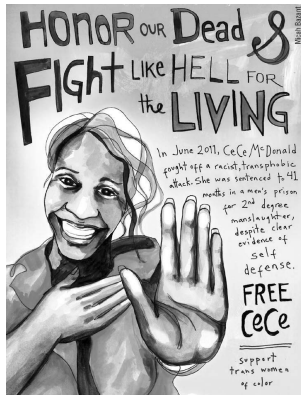 HONOR OUR Dead &
FIGHT LIKE HELL FOR
the LIVING
In June 2011, CeCe McDonald
fought off a racist, transphobic
attack. She was sentenced to 41
months in a men's prison
for 2nd degree
manslaughter,
despite clear
evidence of
self
defense.
FREE
CeCe
support
trans women
of color
Micah Bazant